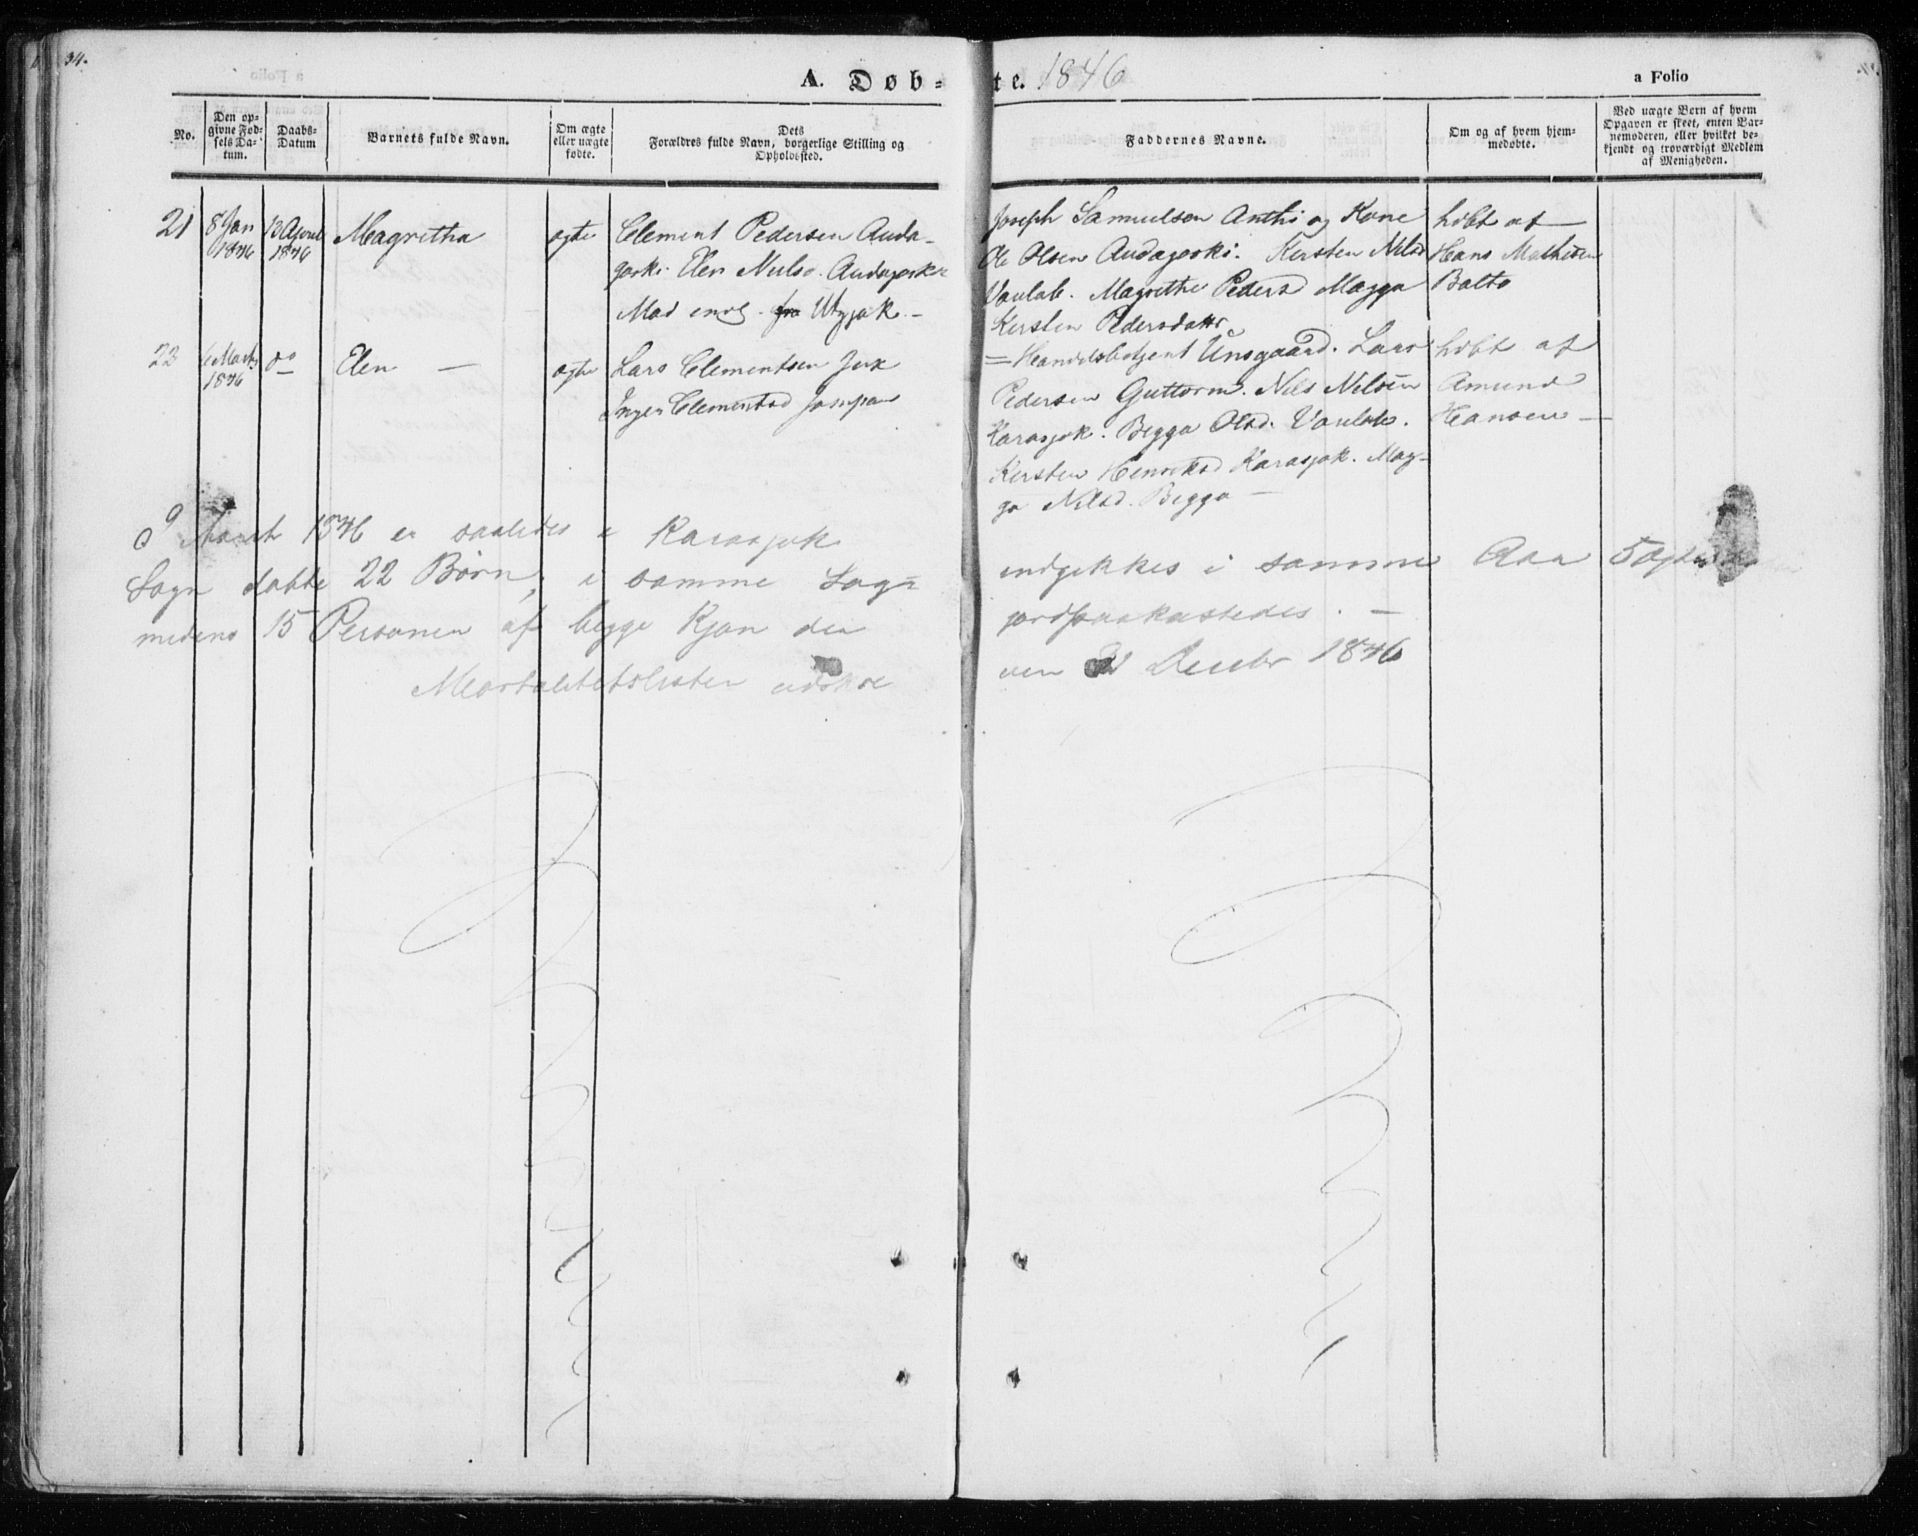 34.
A. Døb-
te. 1846
a Folio
No.
Den op-
givne Fød-
sels Da-
tum.
Daabs-
Datum
Barnets fulde Navn.
Om ægte
eller uægte
fødte.
Dets
Forældres fulde Navn, borgerlige Stilling og
Opholdssted.
Faddernes Navne.
Om og af hvem hjem-
medøbte.
Ved uægte Børn af hvem
Opgaven er skeet, enten Bar-
nemoderen, eller hvilket be-
kjendt og troværdigt Medlem
af Menigheden.
21
8 Jan
1846
12 April
1846
Magretha
ægte
Clement Pedersen Auda-
Elen Nilsd.
Mad Utzjok. -
Joseph Samuelsen Anthi og Kone
Ole Olsen Kersten Nilsd
Vaulab. Magrethe Pedersd Magga
Kersten Pedersdatter
hdbt af
Hans Mathisen
Balto
22
Marts
1846
do
Elen -
ægte
Lars Clementsen
Inger Clementsd
Handelsbetjent Unsgaard. Lars
Pedersen Guttorm. Nils Nilsen
Karasjok. Begga Olsd. Vaulab.
Kersten Henriksd Karasjok. Mag-
ga Nilsd. Begga -
hdbt af
Amund
Hansen -
I Aaret 1846 er saaledes i Karasjok
Sogn døbte 22 Børn, i samme Sogn
indgikkes i samme Aar 5 Ægte
medens 15 Personer af begge Kjøn der
jordpaakastedes. -
Mortalitetslisten udskre
ven Decbr 1846